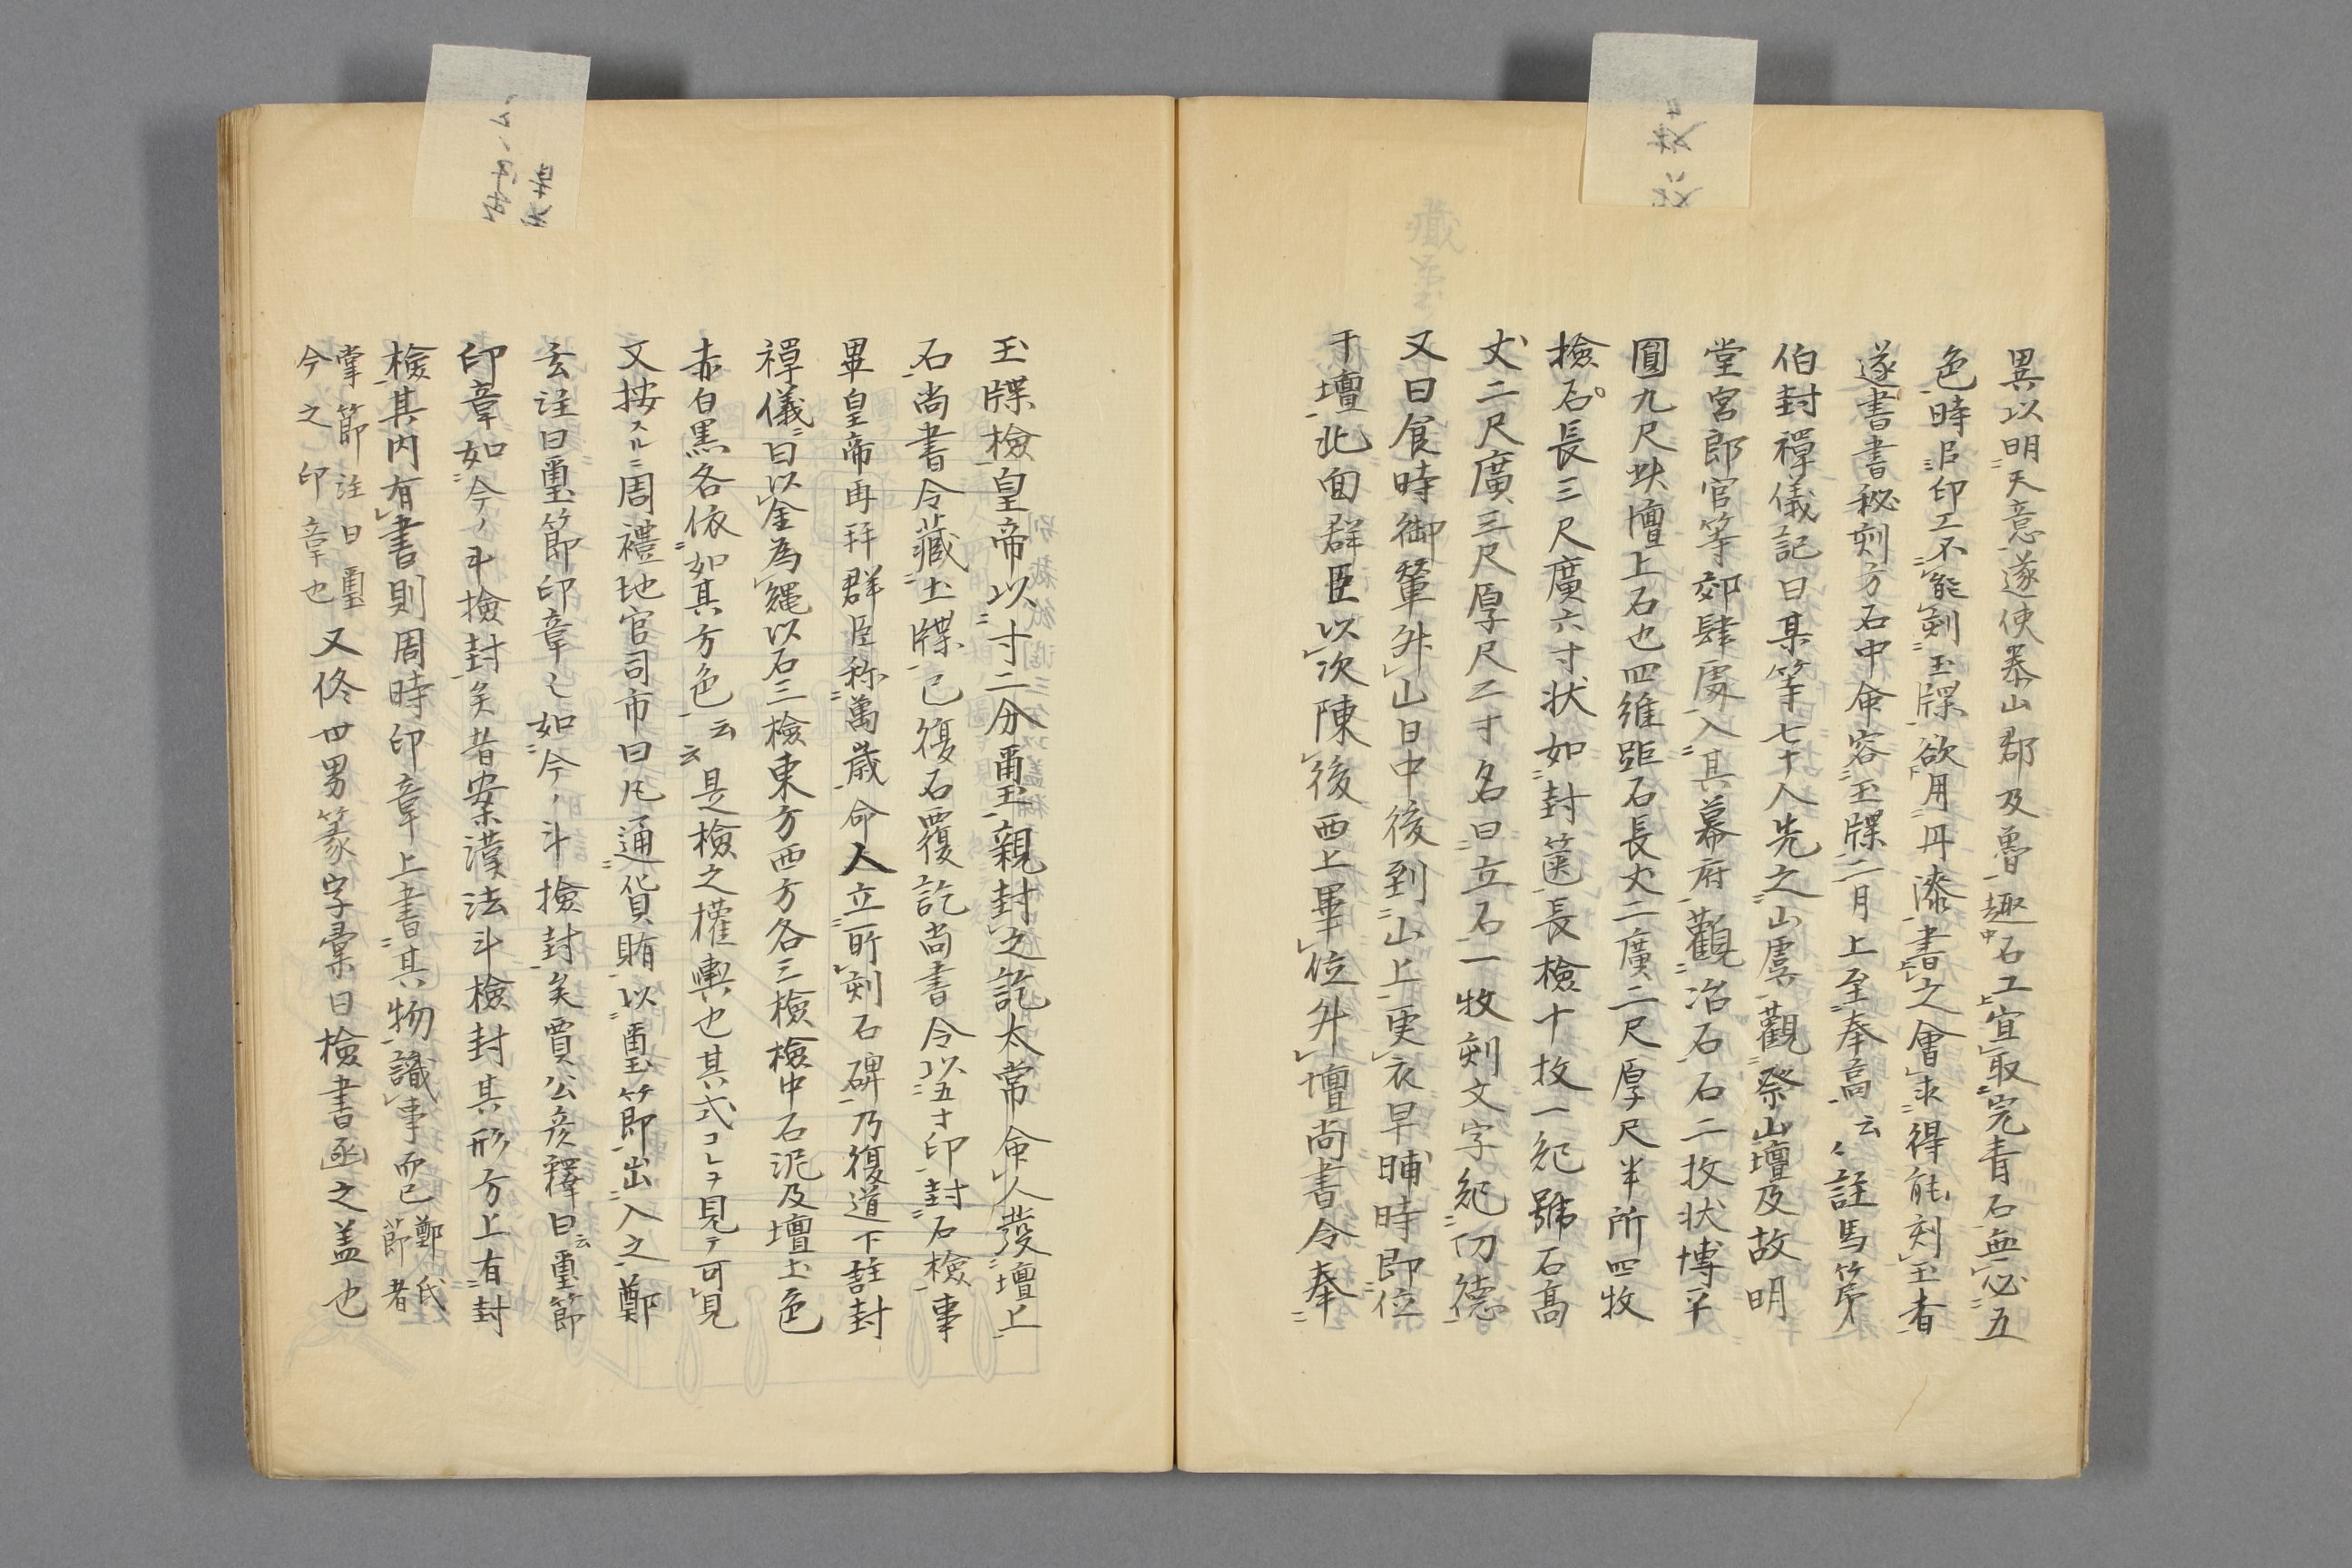 異以明天意遂使泰山郡及魯趣石工宜取完青石無必五
色時印工不能刻玉牒欲用丹漆書之會求得能刻玉者
遂書書秘刻方石中命容玉牒二月上至奉高云々註馬第
伯封禪儀記曰某等七十人先之山虞觀祭山壇及故明
堂宮郎官等郊肆處入其幕府觀治石石二枚状博平
圓九尺此壇上石也四維距石長丈二廣二尺厚尺半所四牧
檢石長三尺廣六寸状如封篋長檢十枚一紀號石高
丈二尺廣三尺厚尺二寸名曰立石一牧刻文字紀功德
又曰食時御輦舛山日中後到山上更衣早晡時即位
于壇北面群臣以次陳後西上畢位舛壇尚書令奉
玉牒檢皇帝以寸二分璽親封之訖太常命人發壇上
石尚書令藏玉牒已復石覆訖尚書令以五寸印封石檢事
畢皇帝再拜群臣称萬歳命人立所刻石碑乃復道下註封
禪儀曰以金為繩以石三檢東方西方各三檢檢中石泥及壇土色
赤白黒各依如其方色云云是檢之權輿也其式コレヲ見テ可見
文按スルニ周禮地官司市曰凡通貨賄以璽節出入之鄭
玄注曰璽節印章也如今ノ斗撿封矣賈公彦釋曰云璽節
印章如今ノ斗撿封矣者案漢法斗檢封其形方上有封
檢其内有書則周時印章上書其物識事而已鄭氏節者
掌節注曰璽今之印章也又佟世男篆字彙曰檢書函之盖也